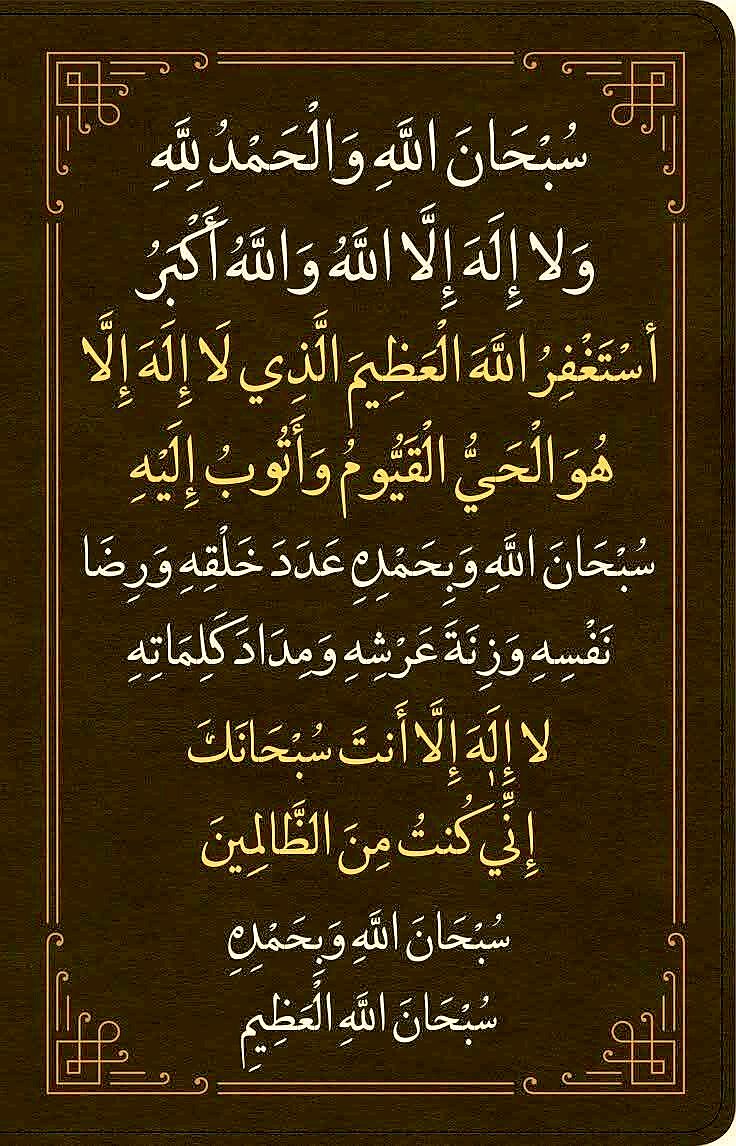 سُبْحَانَ اللَّهِ وَالْحَمْدُ لِلَّهِ
وَلا إِلَهَ إِلَّا اللَّهُ وَاللَّهُ أَكْبَرُ
أسْتَغْفِرُ اللَّهَ الْعَظِيمَ الَّذِي لَا إِلَهَ إِلَّا
هُوَ الْحَيُّ الْقَيُّومُ وَأَتُوبُ إِلَيْهِ
سُبْحَانَ اللَّهِ وَبِحَمْدِهِ عَدَدَ خَلْقِهِ وَرِضَا
نَفْسِهِ وَزِنَةَ عَرْشِهِ وَمِدَادَ كَلِمَاتِهِ
لا إِلَٰهَ إِلَّا أَنتَ سُبْحَانَكَ
إِنِّي كُنتُ مِنَ الظَّالِمِينَ
سُبْحَانَ اللَّهِ وَبِحَمْدِهِ
سُبْحَانَ اللَّهِ الْعَظِيمِ